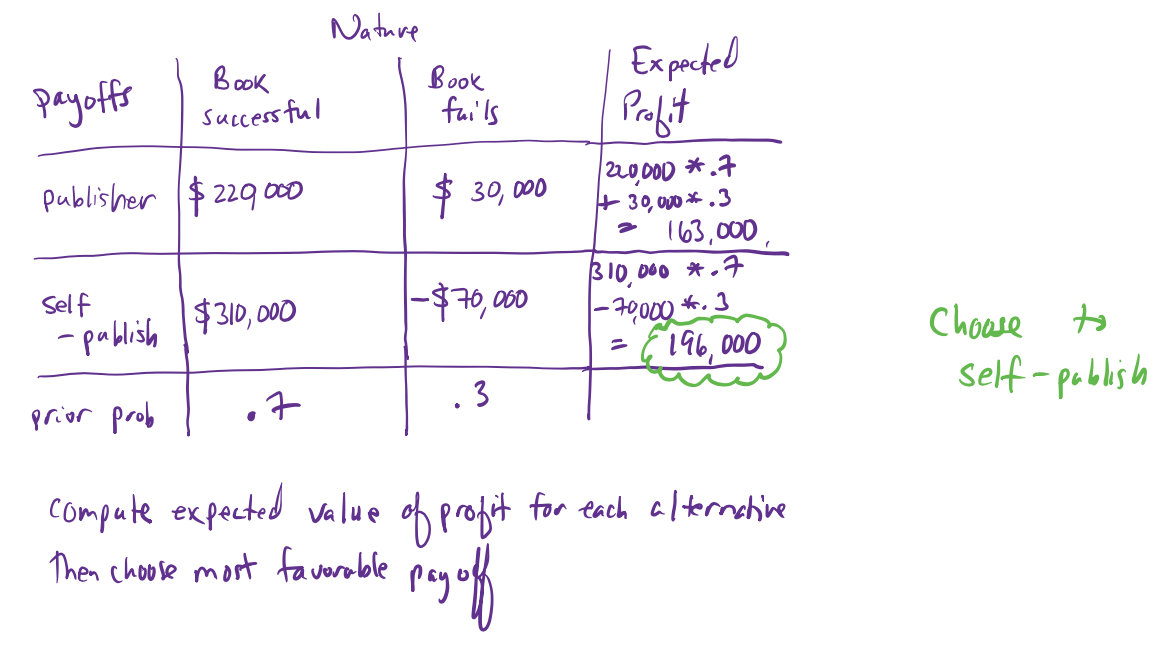 Nature
payoffs Book successful Book fails Expected Profit
publisher $220,000 $30,000 220,000 * .7
+ 30,000 * .3
= 163,000.
self
-publish $310,000 -$70,000 310,000 * .7
-70,000 * .3
= 196,000
prior prob .7 .3
Choose to
self-publish
compute expected value of profit for each alternative
Then choose most favorable payoff